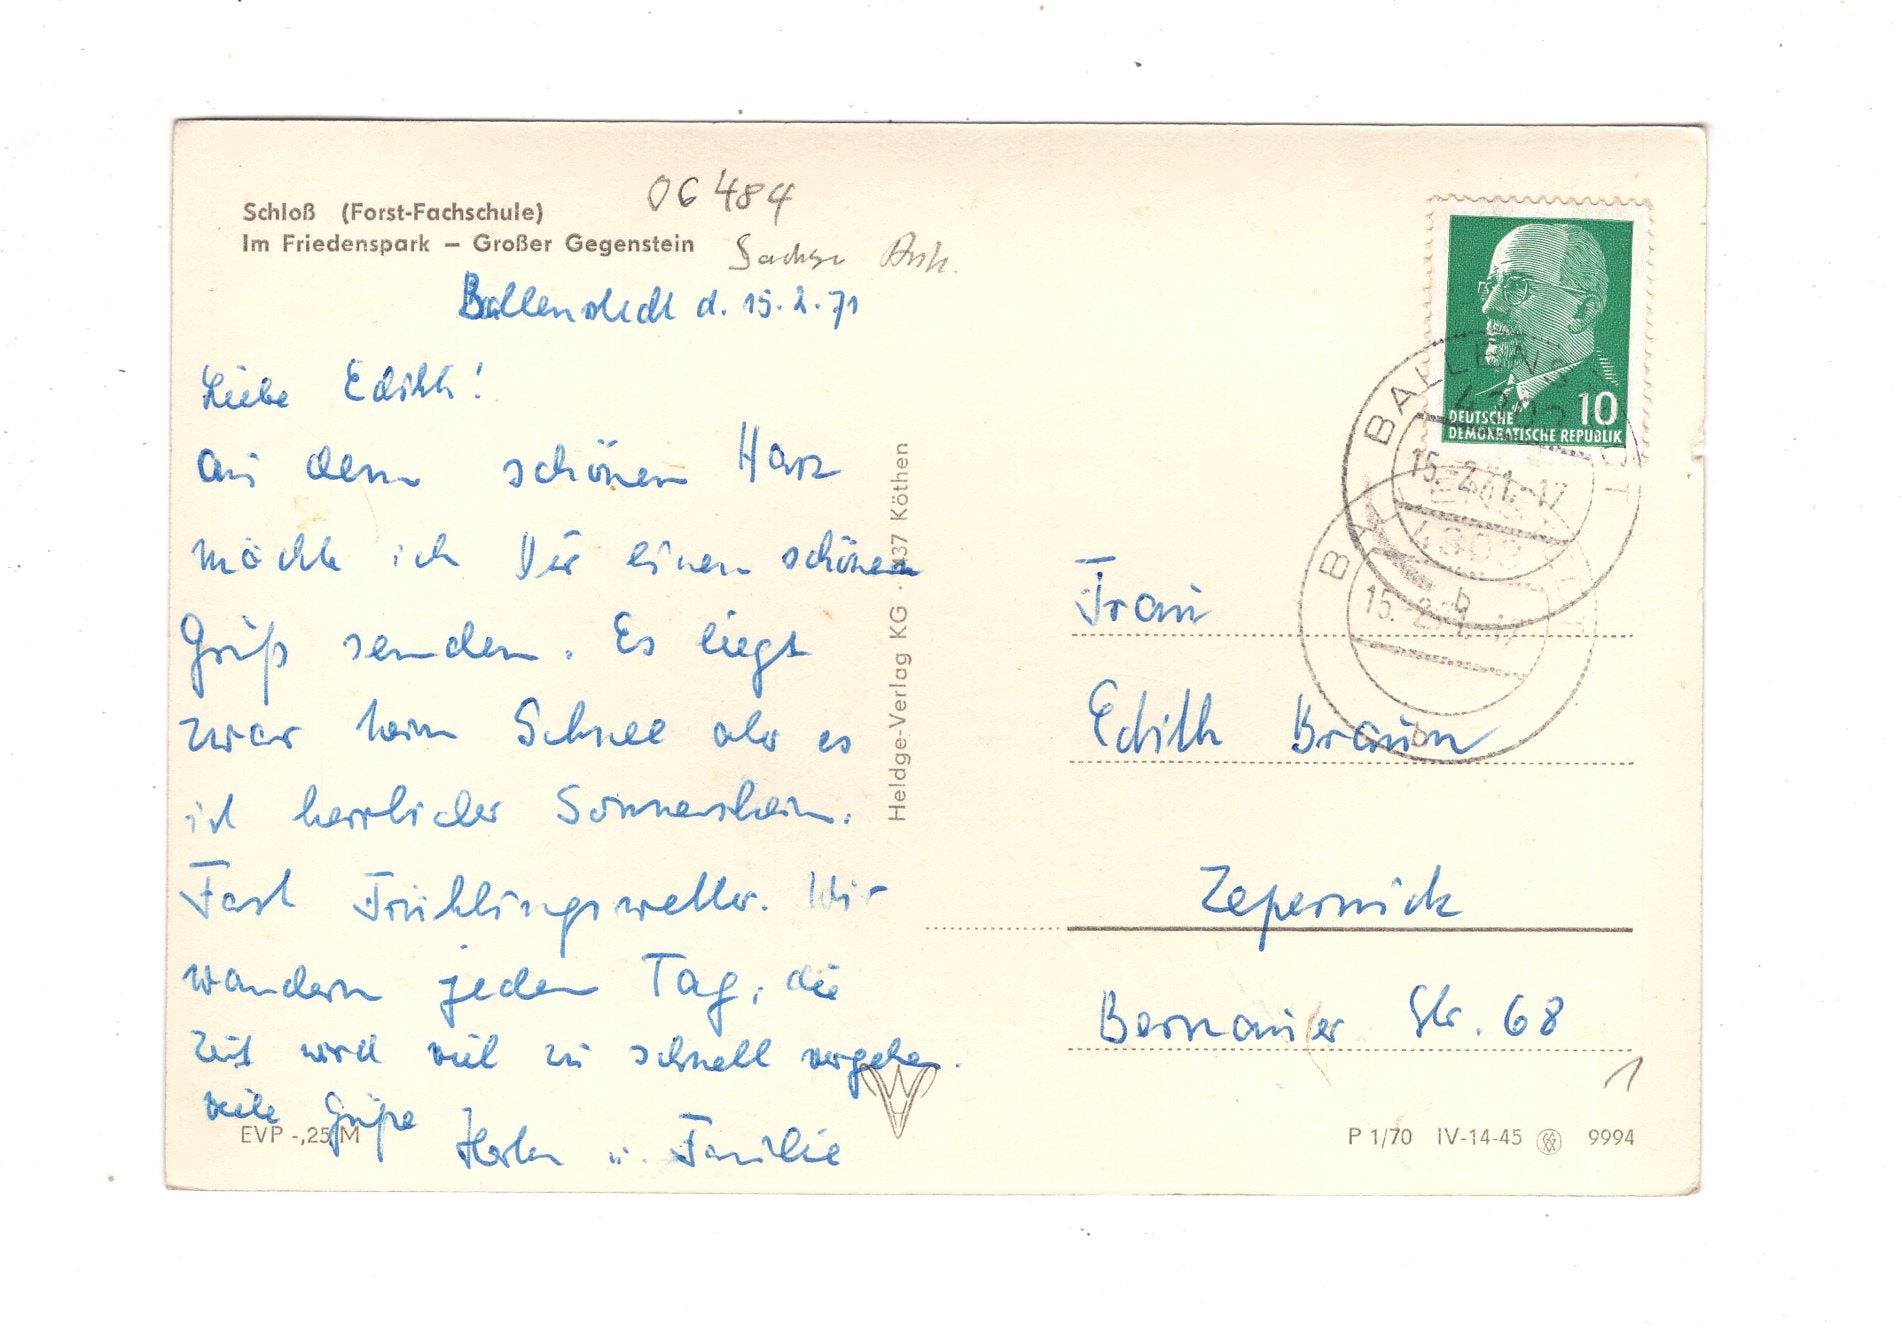 Schloß (Forst-Fachschule)
Im Friedenspark – Großer Gegenstein
06484
Sachse Anh.
Ballenstedt d. 15.2.71
Liebe Edith!
Aus dem schönen Harz
möchte ich Dir einen schönen
Gruß senden. Es liegt
zwar kein Schnee aber es
ist herrlicher Sonnenschein.
Fast Frühlingswetter. Wir
wandern jeden Tag, die
Zeit wird viel zu schnell vergehen.
viele Grüße
u. Familie
EVP -,25 M
Heldge-Verlag KG · 437 Köthen
DEUTSCHE
DEMOKRATISCHE REPUBLIK
10
BALLENSTEDT
4303
15.-2.71.-17
b
BALLENSTEDT
4303
15.-2.71.-17
b
Frau
Edith Braun
Zepernick
Bernauer Str. 68
1
P 1/70 IV-14-45 9994